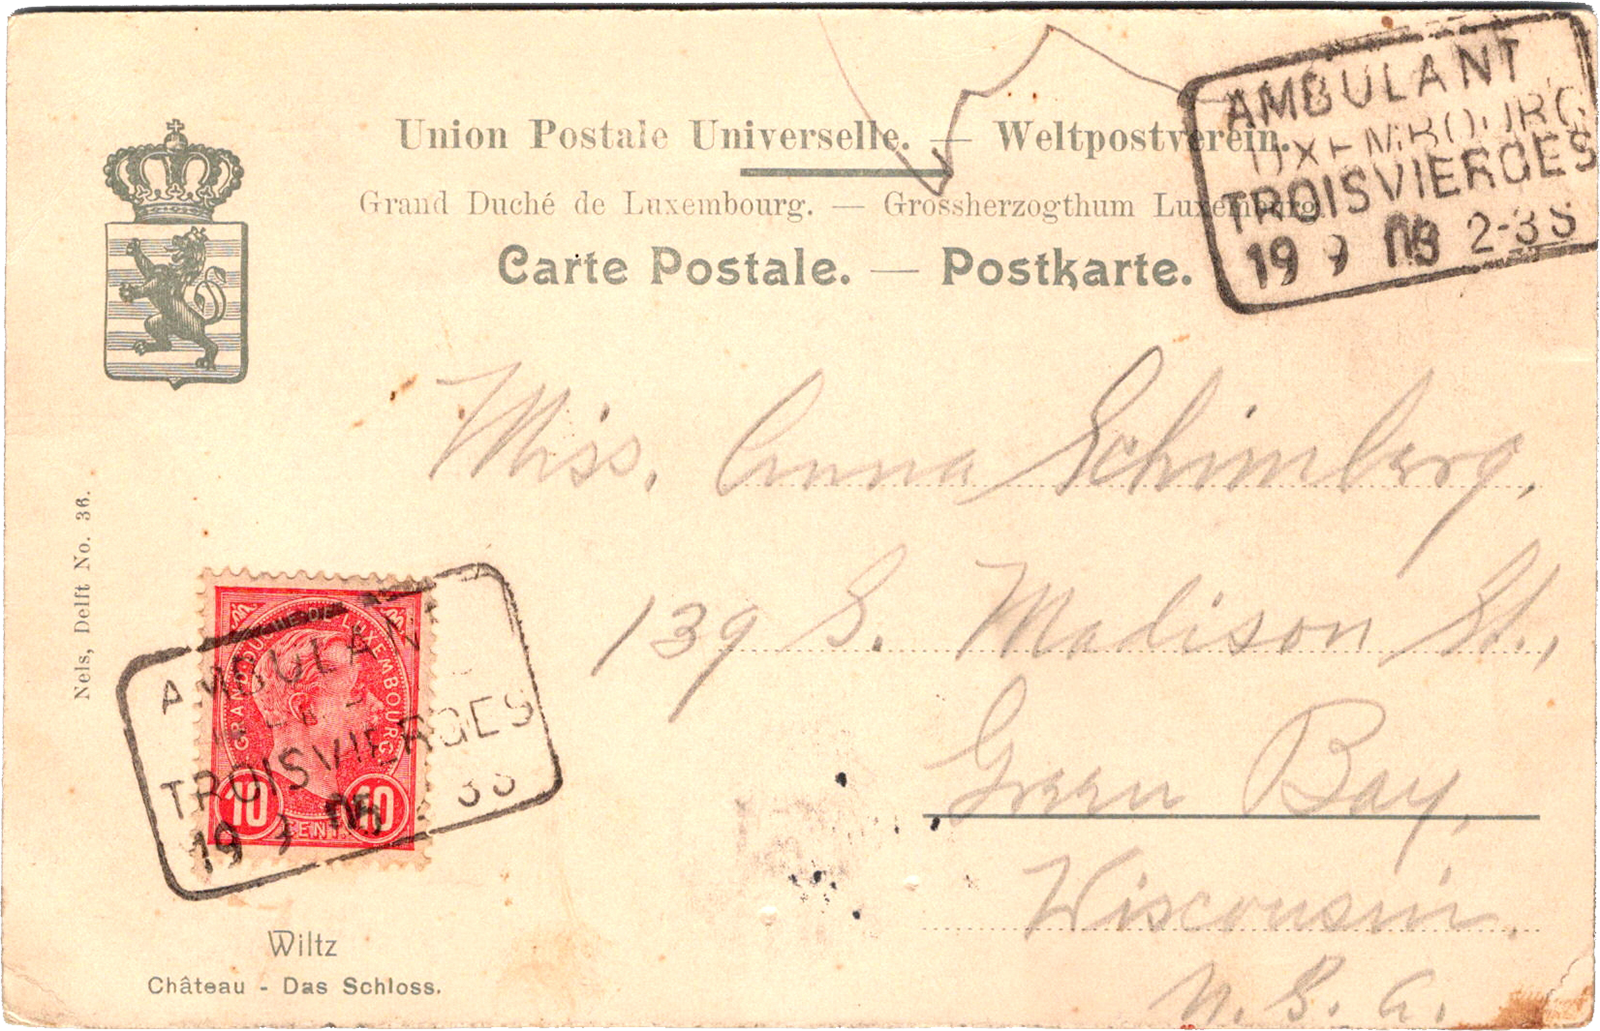 Union Postale Universelle. — Weltpostverein.
Grand Duché de Luxembourg. — Grossherzogthum Luxemburg.
Carte Postale. — Postkarte.
AMBULANT
LUXEMBOURG
TROISVIERGES
19 9 05 2-3S
Miss. Anna Schimberg,
139 S. Madison St.,
Green Bay,
Wisconsin.
U.S.A.
Nels, Delft No. 36.
GRAND DUCHÉ DE LUXEMBOURG
10 CENT. 10
AMBULANT
TROISVIERGES
19 9 05 3S
Wiltz
Château - Das Schloss.